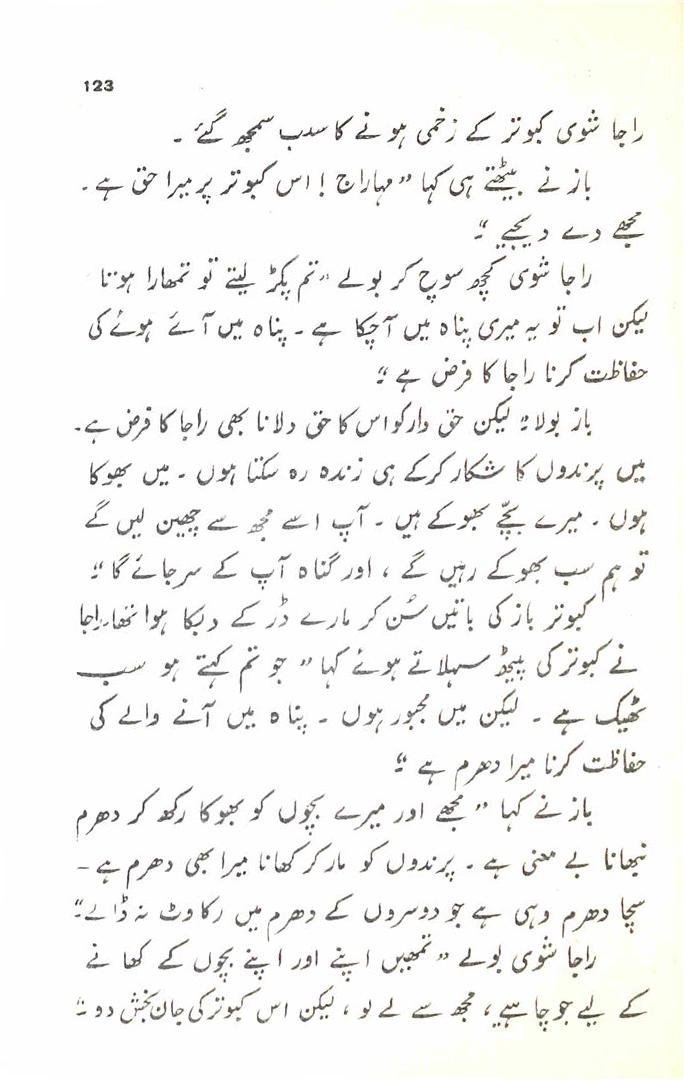 123
راجا شوی کبوتر کے زخمی ہونے کا سبب سمجھ گئے ۔
باز نے بیٹھتے ہی کہا ”مہاراج ! اس کبوتر پر میرا حق ہے ۔
مجھے دے دیجیے “۔
راجا شوی کچھ سوچ کر بولے ”تم پکڑ لیتے تو تمھارا ہوتا
لیکن اب تو یہ میری پناہ میں آچکا ہے ۔ پناہ میں آئے ہوئے کی
حفاظت کرنا راجا کا فرض ہے “۔
باز بولا ”لیکن حق دار کو اس کا حق دلانا بھی راجا کا فرض ہے۔
میں پرندوں کا شکار کرکے ہی زندہ رہ سکتا ہوں ۔ میں بھوکا
ہوں ۔ میرے بچّے بھوکے ہیں ۔ آپ اسے مجھ سے چھین لیں گے
تو ہم سب بھوکے رہیں گے ، اور گناہ آپ کے سر جائے گا “۔
کبوتر باز کی باتیں سُن کر مارے ڈر کے دبکا ہوا تھا۔ راجا
نے کبوتر کی پیٹھ سہلاتے ہوئے کہا ” جو تم کہتے ہو سب
ٹھیک ہے ۔ لیکن میں مجبور ہوں ۔ پناہ میں آنے والے کی
حفاظت کرنا میرا دھرم ہے “۔
باز نے کہا ” مجھے اور میرے بچوں کو بھوکا رکھ کر دھرم
نبھانا بے معنی ہے ۔ پرندوں کو مار کر کھانا میرا بھی دھرم ہے ۔
سچا دھرم وہی ہے جو دوسروں کے دھرم میں رکاوٹ نہ ڈالے۔“
راجا شوی بولے ” تمھیں اپنے اور اپنے بچوں کے کھانے
کے لیے جو چاہیے ، مجھ سے لے لو ، لیکن اس کبوتر کی جان بخش دو “۔